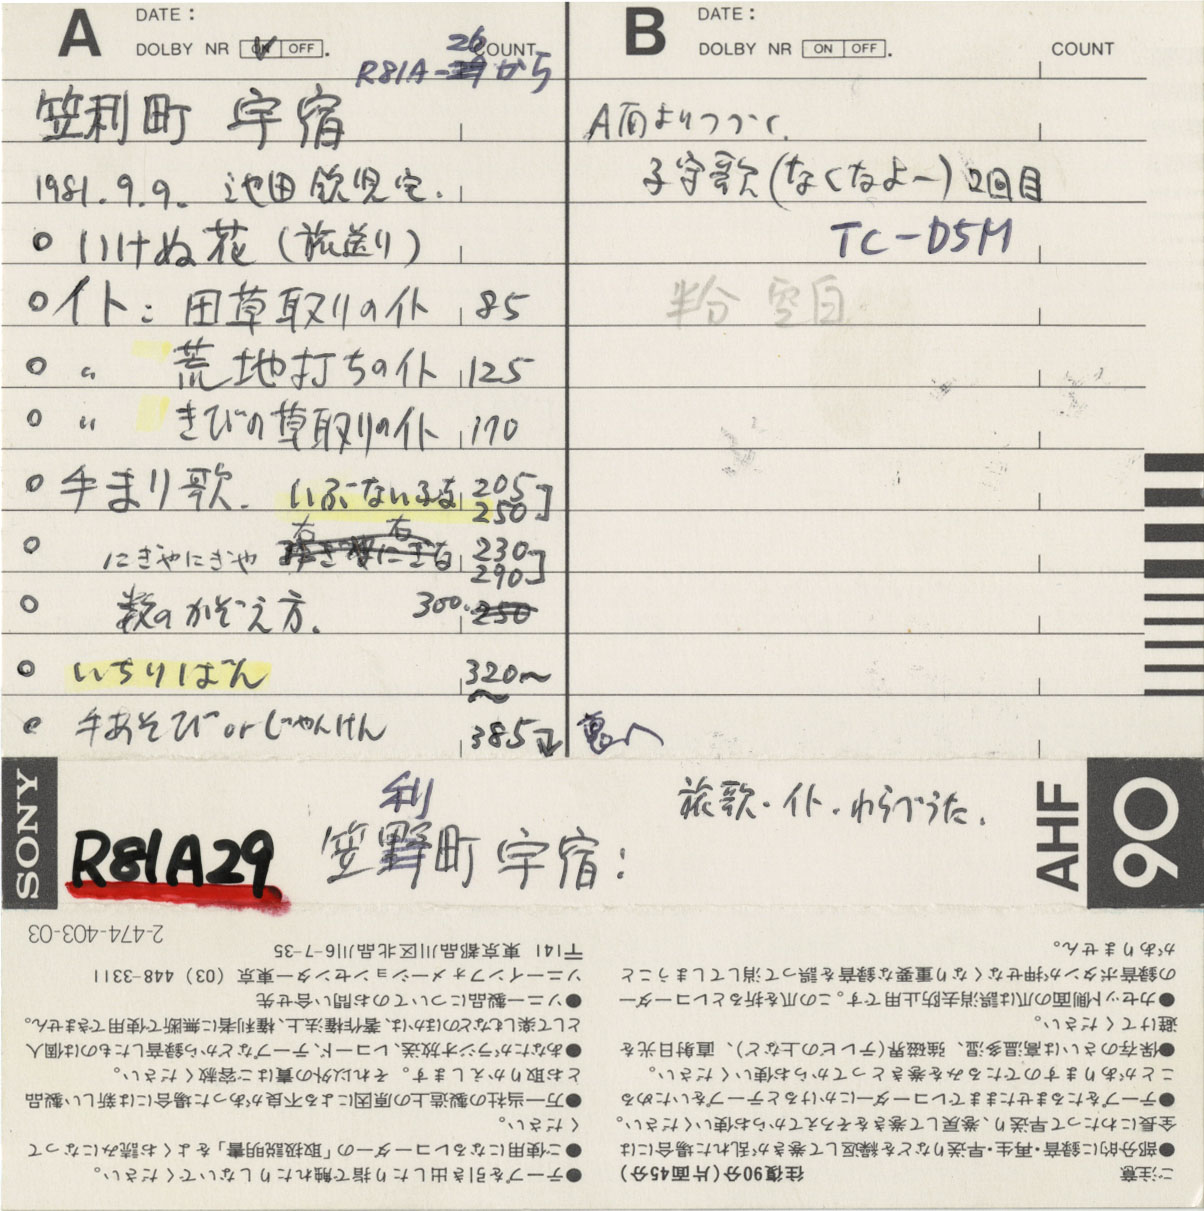 A DATE:
DOLBY NR ON OFF . COUNT
26
R81A-29から
笠利町 宇宿
1981.9.9. 池田 欽児宅.
○ いけぬ花 (旅送り)
○ イト: 田草取りのイト 85
○ 〃 荒地打ちのイト 125
○ 〃 きびの草取りのイト 170
○ 手まり歌. いぶーないふる 205
250
右 右
○ にぎやにぎや 230
290
○ 数のかぞえ方. 300. 250
○ いちりばん 320〜
○ 手あそび or じゃんけん 385
B DATE:
DOLBY NR ON OFF . COUNT
A面よりつづく.
子守歌(なくなよー) 2回目
TC-D5M
半分 空白
裏へ
SONY
R81A29
利
笠野町 宇宿:
旅歌・イト・わらべうた.
AHF
90
ご注意 往復90分(片面45分)
●部分的に録音・再生・早送りなどを繰返して巻きが乱れた場合には
全長にわたって早送り、巻戻して巻きをそろえてからお使いください。
●テープをたるませたままでレコーダーにかけるとテープをいためる
ことがありますのでたるみを巻きとってからお使いください。
●保存のさいは高温多湿、強磁界(テレビの上など)、直射日光を
避けてください。
●カセット側面の爪は誤消去防止用です。この爪を折るとレコーダー
の録音ボタンが押せなくなり重要な録音を誤って消してしまうこと
がありません。
●テープを引き出したり指で触れたりしないでください。
●ご使用になるレコーダーの「取扱説明書」をよくお読みになって
ください。
●万一当社の製造上の原因による不良があった場合には新しい製品
とお取りかえします。それ以外の責はご容赦ください。
●あなたがラジオ放送、レコード、テープなどから録音したものは個人
として楽しむなどのほかは、著作権法上、権利者に無断で使用できません。
●ソニー製品についてのお問い合せ先
ソニーインフォメーションセンター東京 (03) 448-3311
〒141 東京都品川区北品川6-7-35
2-474-403-03